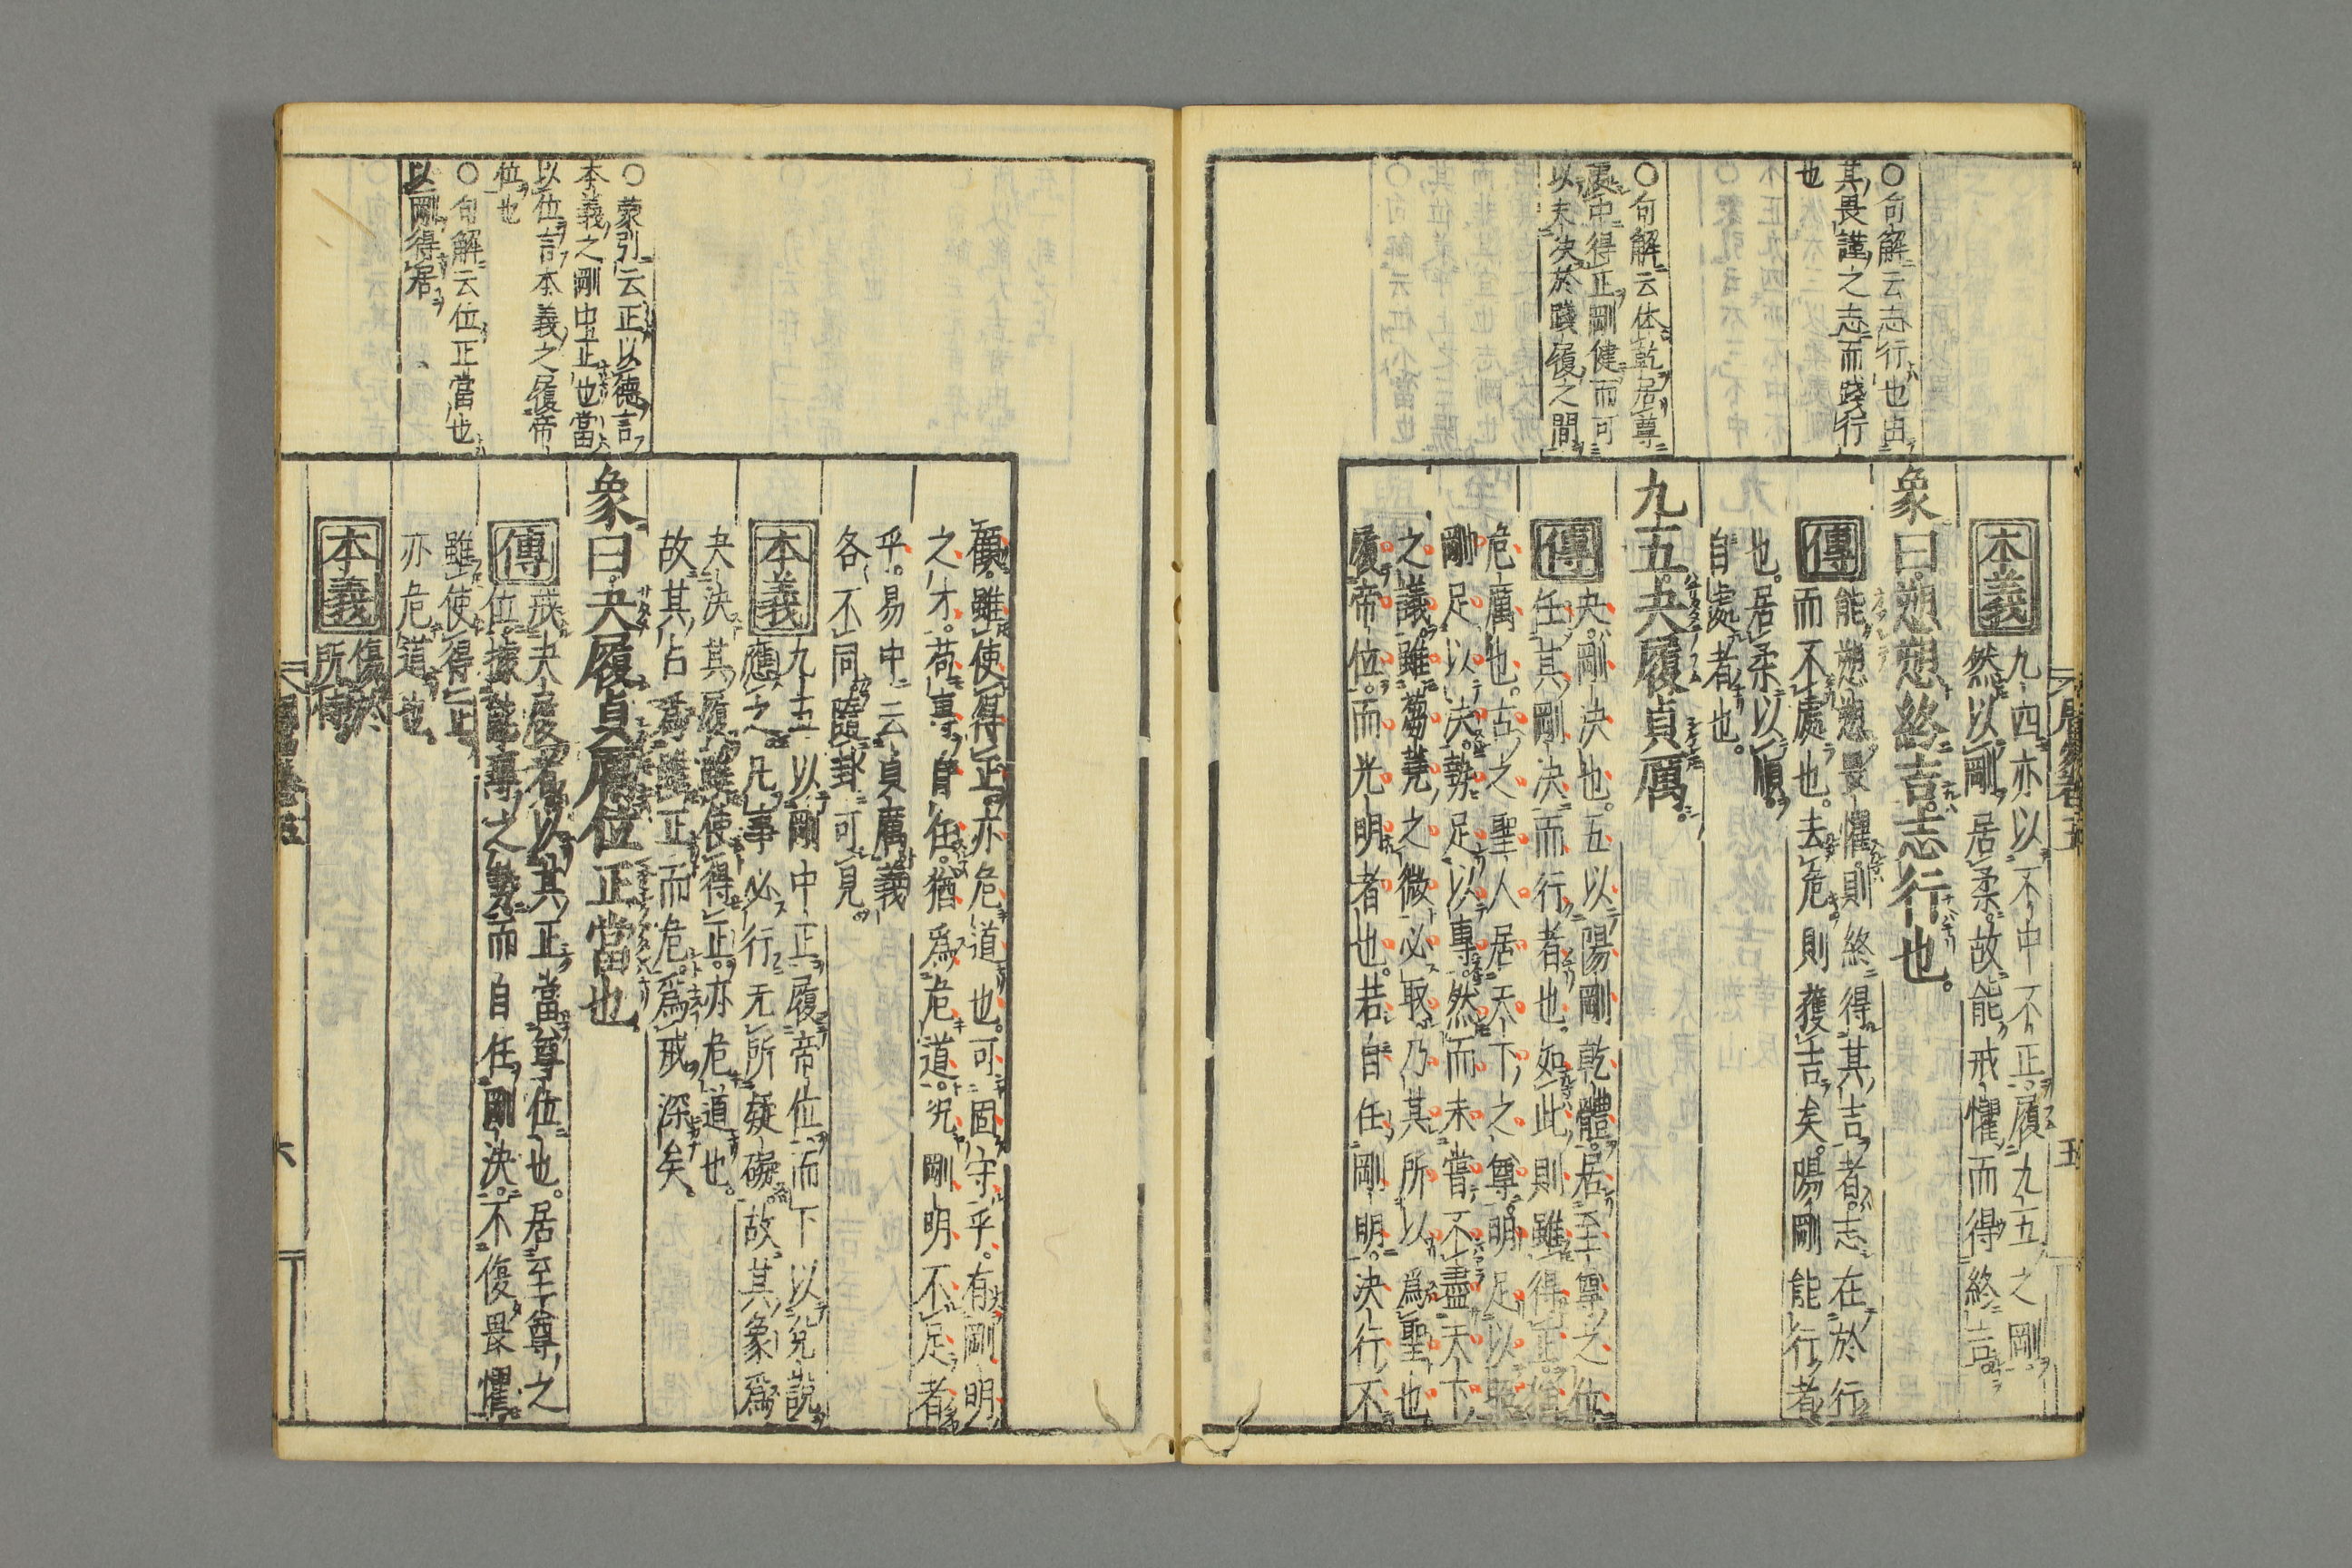 〇句解云志行也由
其畏謹之志而踐行
也
〇句解云体乾居尊
處中得正剛健而可
以夬决於踐履之間
周易卷五
五
本義
九四亦以不中不正履九五之剛
然以剛居柔故能戒懼而得終吉
象曰愬愬終吉志行也
傳
能愬愬畏懼則終得其吉者志在於行
而不處也去危則獲吉矣陽剛能行者
也居柔以順
自處者也
九五夬履貞厲
傳
夬剛决也五以陽剛乾體居至尊之位
任其剛决而行者也如此則雖得正猶
危厲也古之聖人居天下之尊明足以照
剛足以决勢足以專然而未嘗不盡天下
之議雖蒭蕘之微必取乃其所以爲聖也
履帝位而光明者也若自任剛明决行不
〇蒙引云正以德言
本義之剛中正也當
以位言本義之履帝
位也
〇句解云位正當也
以剛得居
顧雖使得正亦危道也可固守乎有剛明
之才苟專自任猶爲危道况剛明不足者
乎易中云貞厲義
各不同隨卦可見
本義
九五以剛中正履帝位而下以兌說
應之凡事必行无所疑礙故其象爲
夬决其履雖使得正亦危道也
故其占爲雖正而危爲戒深矣
象曰夬履貞厲位正當也
傳
戒夬履者以其正當尊位也居至尊之
位據能專之勢而自任剛决不復畏懼
雖使得正
亦危道也
本義
傷於
所恃
六